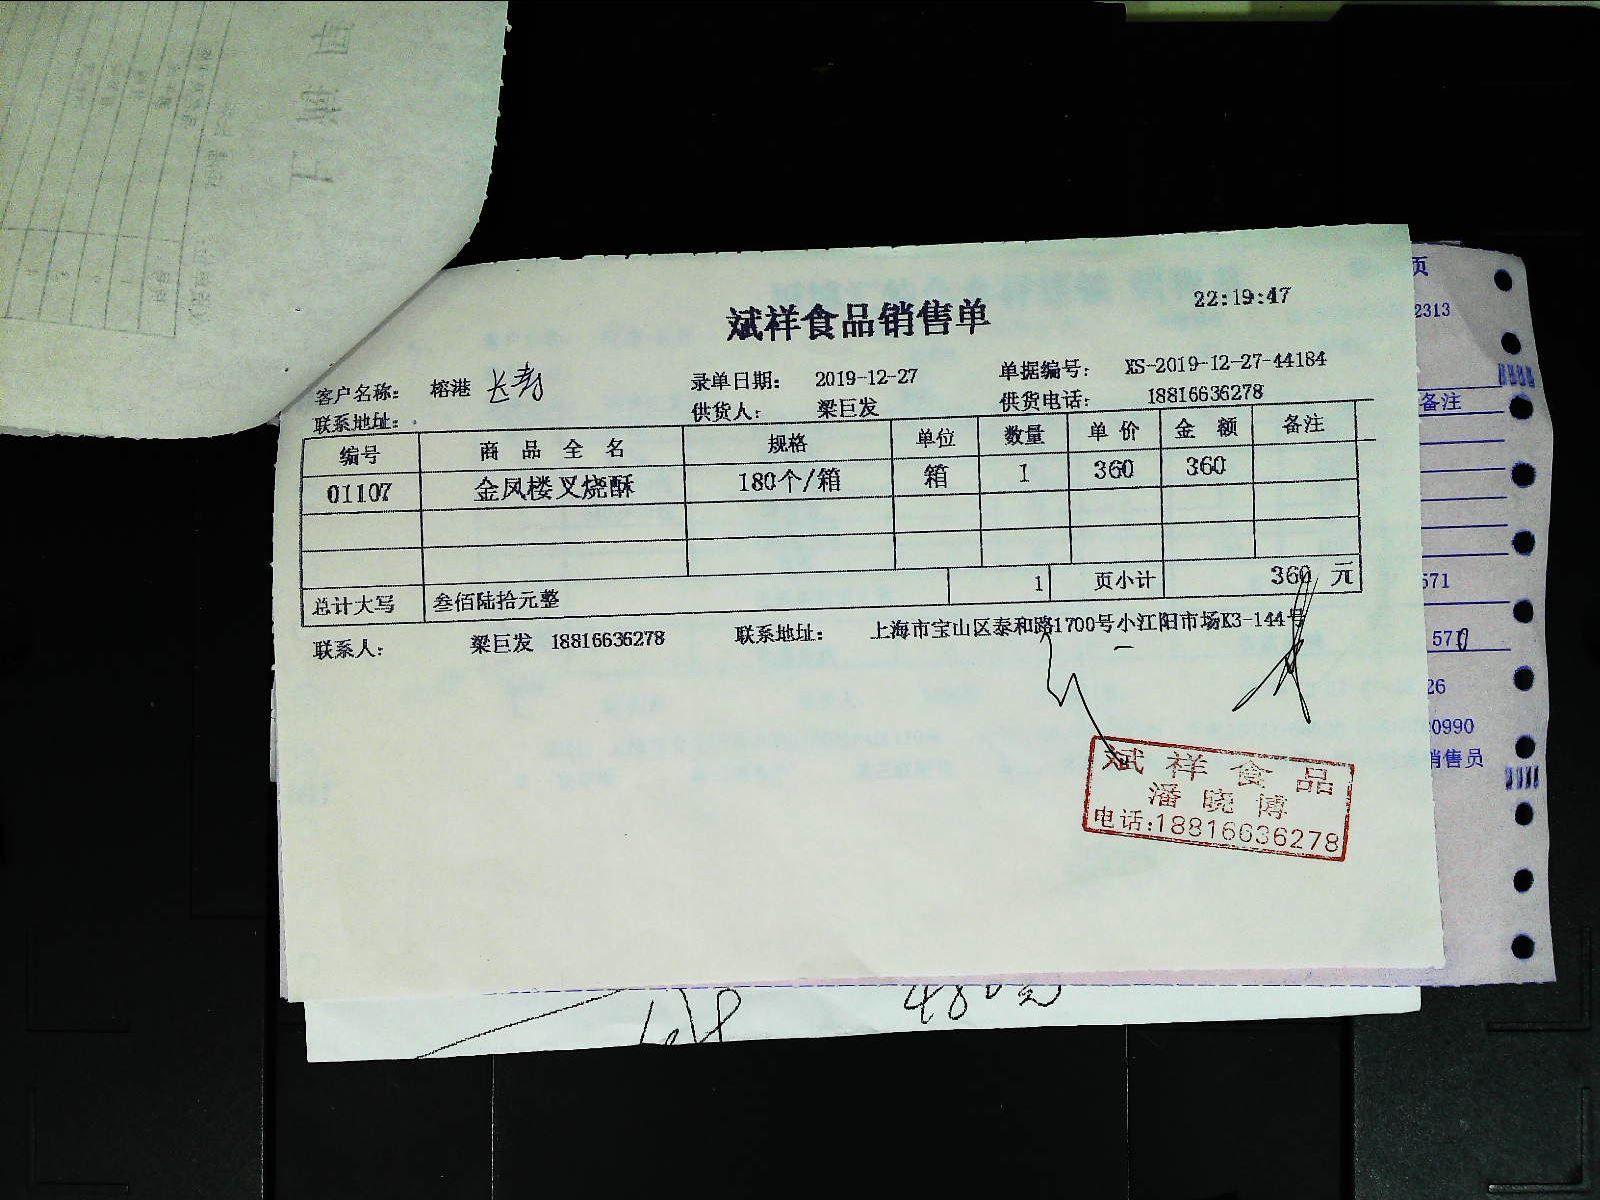 斌祥食品销售单
22:19:47
客户名称： 榕港 长寿 录单日期： 2019-12-27 单据编号： XS-2019-12-27-44184
联系地址： 供货人： 梁巨发 供货电话： 18816636278
编号 商品全名 规格 单位 数量 单价 金额 备注
01107 金凤楼叉烧酥 180个/箱 箱 1 360 360
总计大写 叁佰陆拾元整 1 页小计 360 元
联系人： 梁巨发 18816636278 联系地址： 上海市宝山区泰和路1700号小江阳市场K3-144号
斌祥食品
潘晓博
电话:18816636278
页
2313
备注
571
570
26
0990
销售员